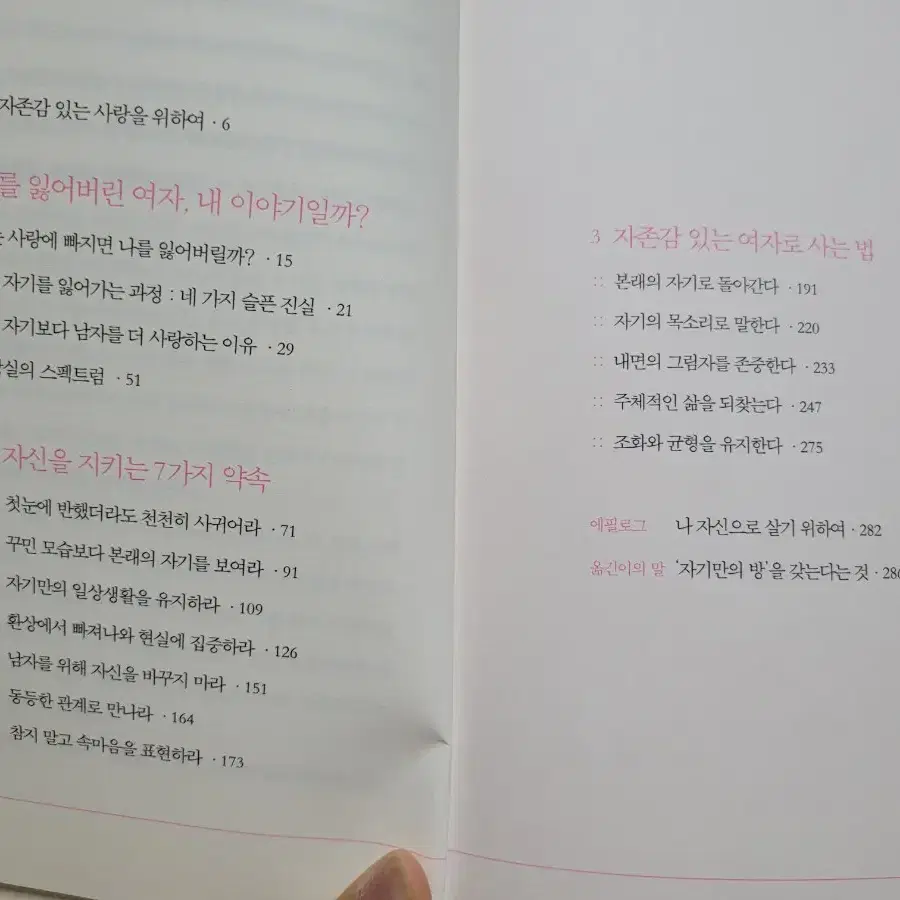 자존감 있는 사랑을 위하여 · 6
를 잃어버린 여자, 내 이야기일까?
사랑에 빠지면 나를 잃어버릴까? · 15
자기를 잃어가는 과정 : 네 가지 슬픈 진실 · 21
자기보다 남자를 더 사랑하는 이유 · 29
실의 스펙트럼 · 51
자신을 지키는 7가지 약속
첫눈에 반했더라도 천천히 사귀어라 · 71
꾸민 모습보다 본래의 자기를 보여라 · 91
자기만의 일상생활을 유지하라 · 109
환상에서 빠져나와 현실에 집중하라 · 126
남자를 위해 자신을 바꾸지 마라 · 151
동등한 관계로 만나라 · 164
참지 말고 속마음을 표현하라 · 173
3 자존감 있는 여자로 사는 법
:: 본래의 자기로 돌아간다 · 191
:: 자기의 목소리로 말한다 · 220
:: 내면의 그림자를 존중한다 · 233
:: 주체적인 삶을 되찾는다 · 247
:: 조화와 균형을 유지한다 · 275
에필로그 나 자신으로 살기 위하여 · 282
옮긴이의 말 '자기만의 방'을 갖는다는 것 ·